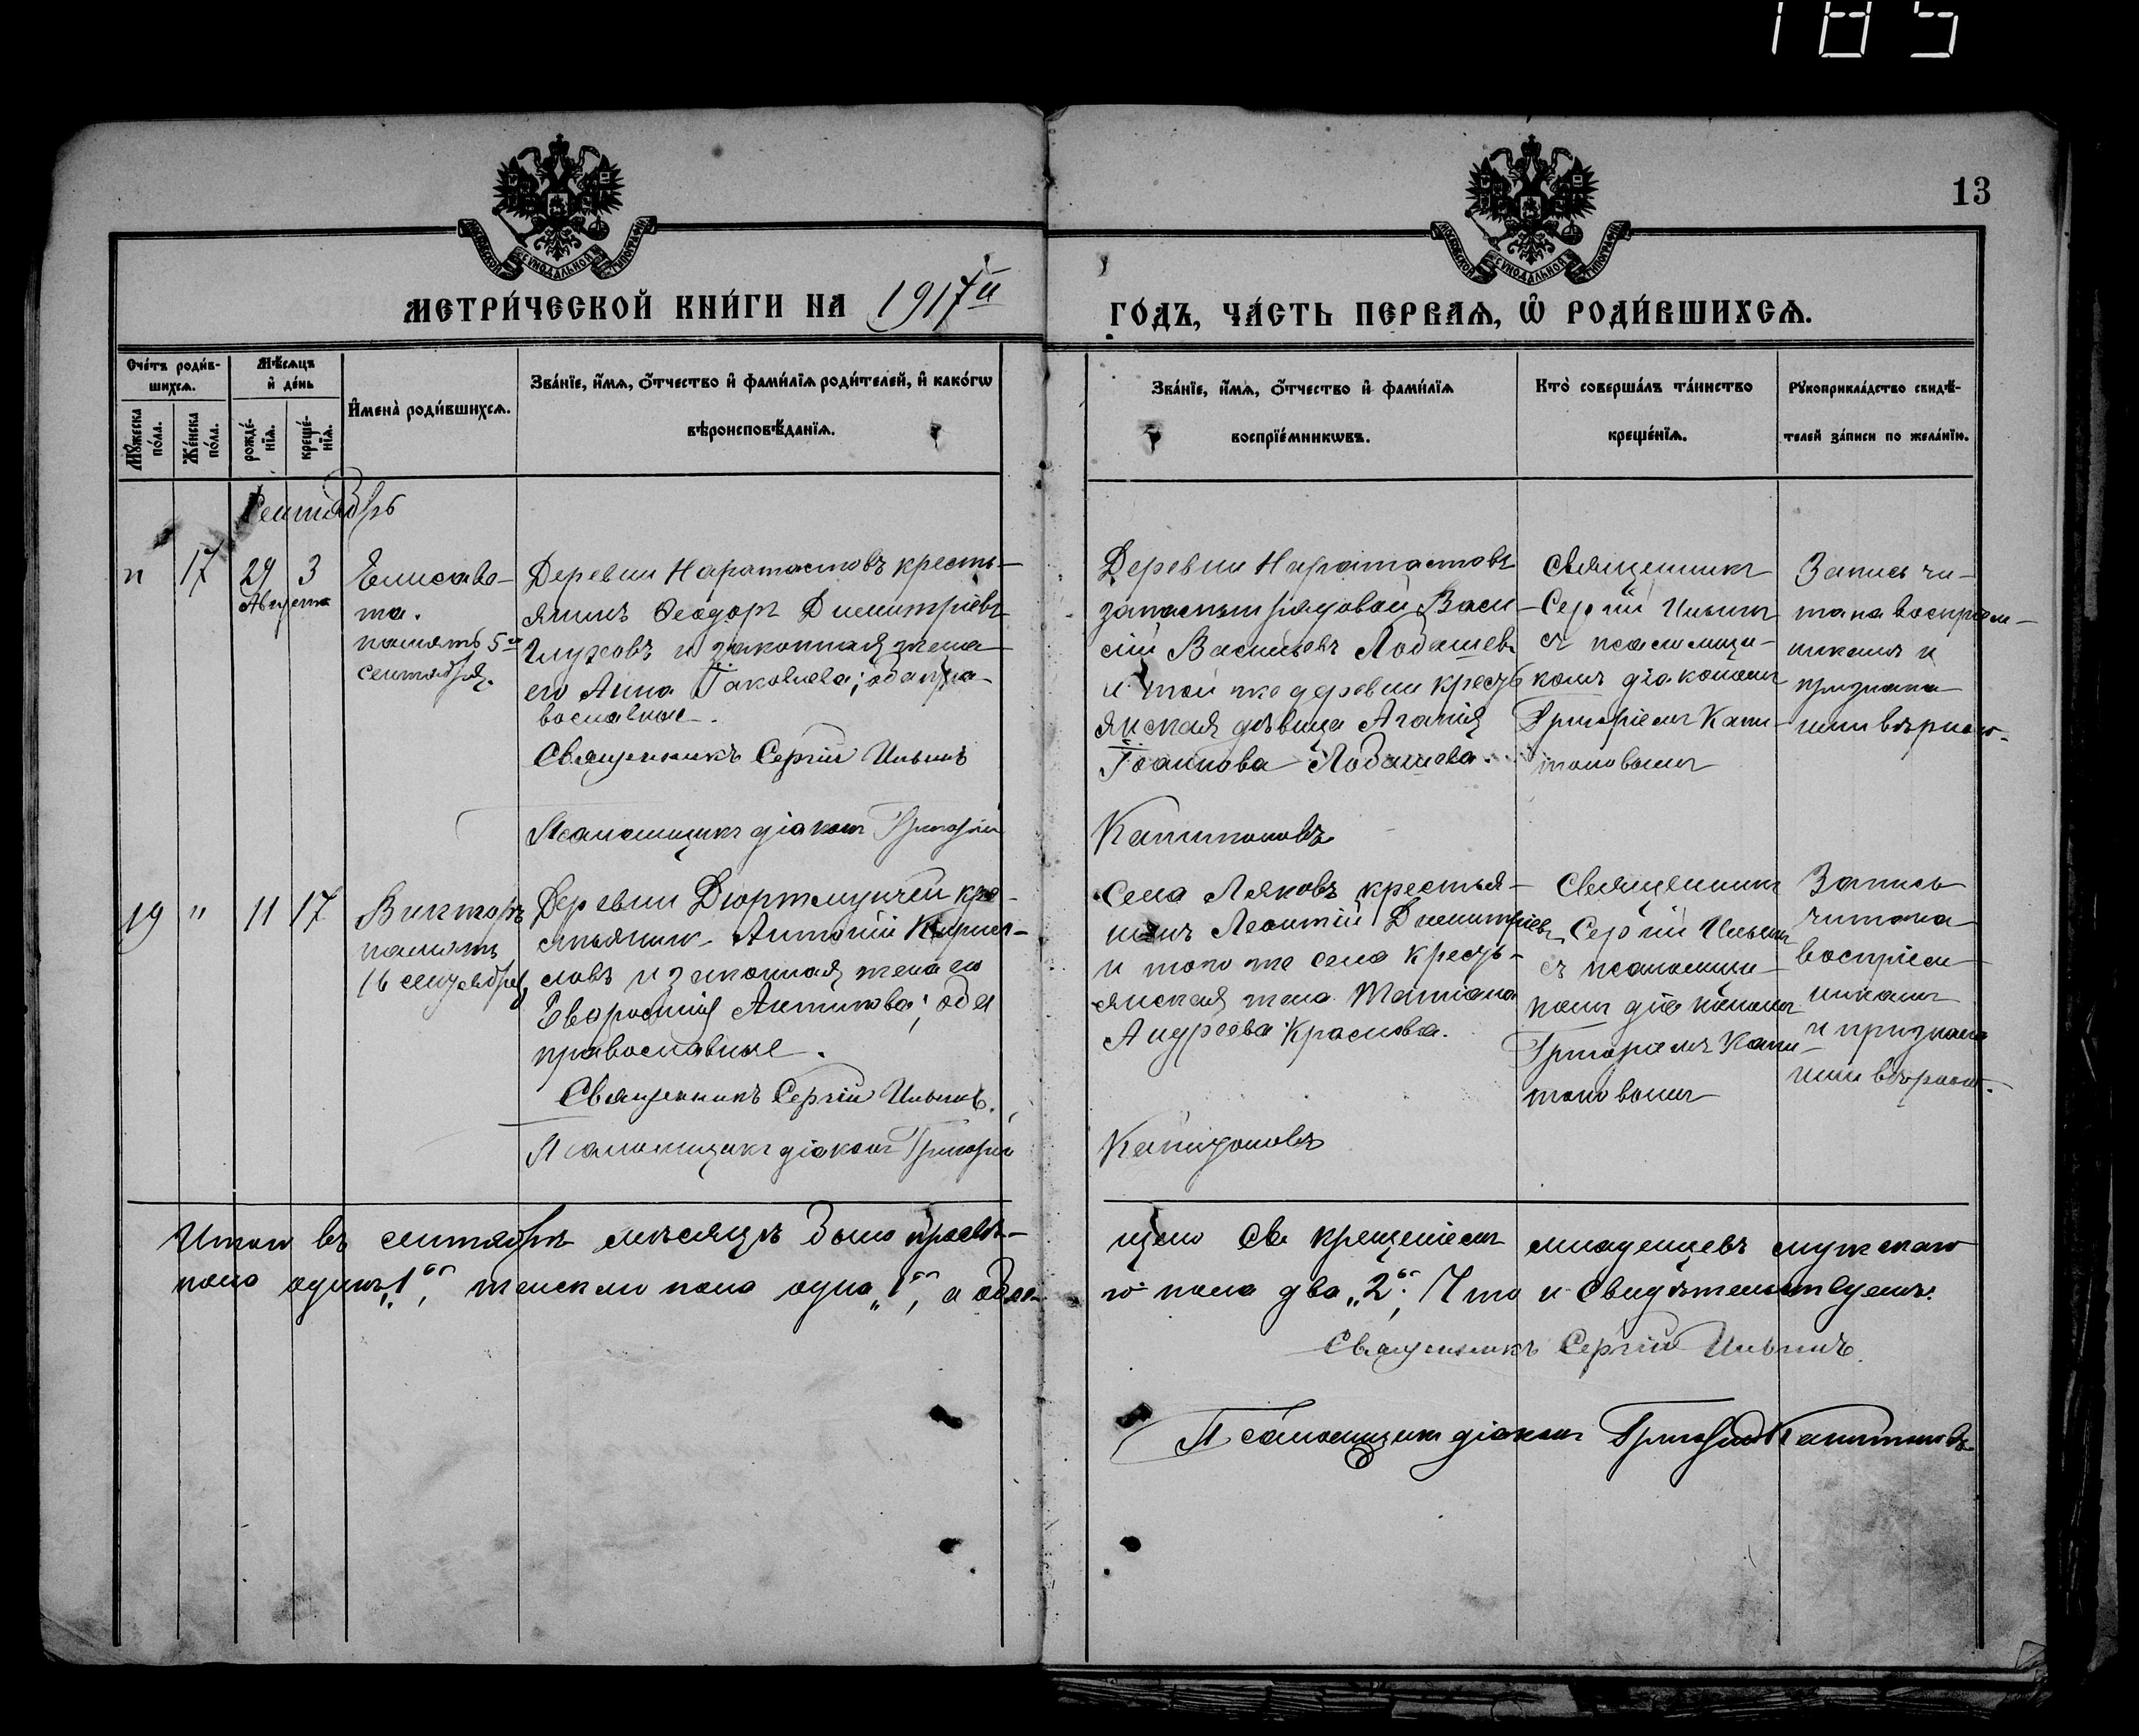 185
13
МОСКОВСКОЙ СѴНОДАЛЬНОЙ ТИПОГРАФІИ
МОСКОВСКОЙ СѴНОДАЛЬНОЙ ТИПОГРАФІИ
МЕТРИ́ЧЕСКОЙ КНИ́ГИ НА 1917й
ГО́ДЪ, ЧА́СТЬ ПЕ́РВАѦ, Ѡ҆ РОДИ́ВШИХСѦ.
Сче́тъ роди́в-
шихсѧ.
Мꙋ́жеска по́ла.
Же́нска по́ла.
Мѣ́сѧцъ
и҆ де́нь
рожде́-
нїѧ.
креще́-
нїѧ.
И҆мена̀ роди́вшихсѧ.
Зва́нїе, и҆́мѧ, ѻ҆́тчество и҆ фами́лїѧ роди́телей, и҆ како́гѡ
вѣроисповѣ́данїѧ.
Зва́нїе, и҆́мѧ, ѻ҆́тчество и҆ фами́лїѧ
воспрїе́мникѡвъ.
Кто̀ соверша́лъ та́инство
креще́нїѧ.
Рꙋкоприкла́дство свидѣ́-
телей за́писи по жела́нїю.
Сентябрь
"
17
29
Августа
3
Елисаве-
та.
память 5го
сентября.
Деревни Наратастовъ кресть-
янинъ Ѳеодоръ Димитріевъ
Глуховъ и законная жена
его Анна Іаковлева; оба пра-
вославные.
Священникъ Сергій Ильинъ
Псаломщикъ діаконъ Григорій
Деревни Наратастовъ
запасный рядовой Васи-
лій Васильевъ Лобашевъ
и той же деревни кресть
янская дѣвица Агапія
Іоаннова Лобашева.
Капитоновъ
Священникъ
Сергій Ильинъ
съ псаломщи-
комъ діакономъ
Григоріемъ Капи-
тоновымъ
Запись чи-
тана воспріем-
никами и
признана
ими вѣрною.
19
"
11
17
Викторъ
память
16 сентября,
Деревни Дюртмунчей кре-
стьянин Антоній Кирил-
ловъ и законная жена его
Евфросинія Антипова; оба
православные.
Священникъ Сергій Ильинъ.
Псаломщикъ діаконъ Григорій
Села Ляковъ крестья-
нинъ Леонтій Димитріевъ
и того же села кресть-
янская жена Татіана
Андреева Краснова.
Капитоновъ
Священникъ
Сергій Ильинъ
съ псаломщи-
комъ діакономъ
Григоріемъ Капи-
тоновымъ
Запись
читана
воспріем-
никами
и признана
ими вѣрною.
Итого въ сентябрѣ мѣсяцѣ было просвѣ-
щено Св. крещеніемъ младенцевъ мужскаго
пола одинъ „1“, женскаго пола одна „1“, а обое-
го пола два „2“; Что и свидѣтельствуемъ:
Священникъ Сергій Ильинъ.
Псаломщикъ діаконъ Григорій Капитоновъ.